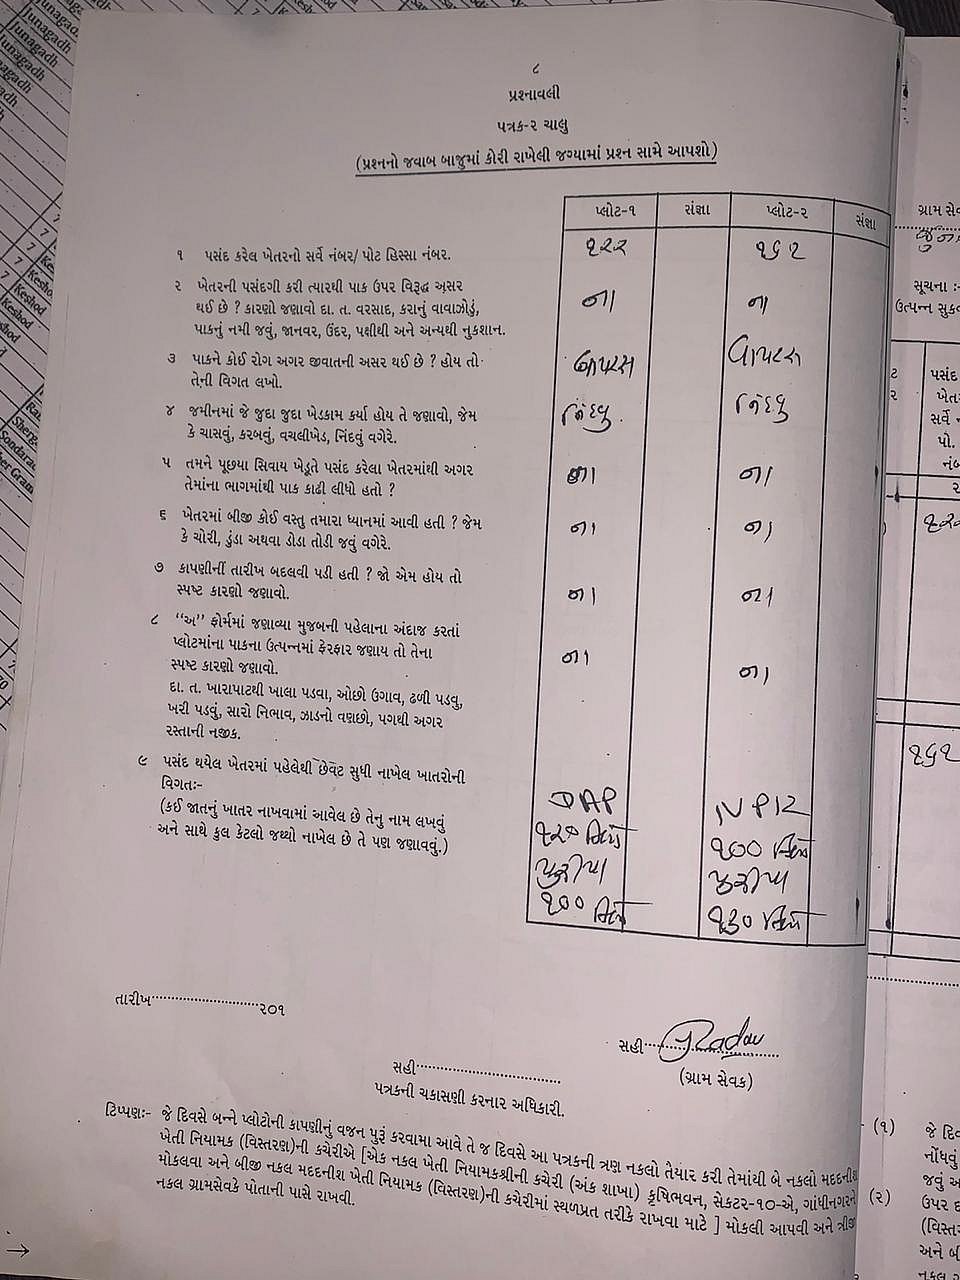 ૮
પ્રશ્નાવલી
પત્રક-૨ ચાલુ
(પ્રશ્નનો જવાબ બાજુમાં કોરી રાખેલી જગ્યામાં પ્રશ્ન સામે આપશો)
પ્લોટ-૧ સંજ્ઞા પ્લોટ-૨ સંજ્ઞા
૧ પસંદ કરેલ ખેતરનો સર્વે નંબર/ પોટ હિસ્સા નંબર. ૧૨૨ ૧૬૧
૨ ખેતરની પસંદગી કરી ત્યારથી પાક ઉપર વિરૂદ્ધ અસર
થઈ છે ? કારણો જણાવો દા. ત. વરસાદ, કરાનું વાવાઝોડું, ના ના
પાકનું નમી જવું, જાનવર, ઉંદર, પક્ષીથી અને અન્યથી નુકશાન.
૩ પાકને કોઈ રોગ અગર જીવાતની અસર થઈ છે ? હોય તો
તેની વિગત લખો. વાયરસ વાયરસ
૪ જમીનમાં જે જુદા જુદા ખેડકામ કર્યા હોય તે જણાવો, જેમ નિંદવુ નિંદવુ
કે ચાસવું, કરબવું, વચલીખેડ, નિંદવું વગેરે.
૫ તમને પૂછયા સિવાય ખેડૂતે પસંદ કરેલા ખેતરમાંથી અગર
તેમાંના ભાગમાંથી પાક કાઢી લીધો હતો ? ના ના
૬ ખેતરમાં બીજી કોઈ વસ્તુ તમારા ધ્યાનમાં આવી હતી ? જેમ
કે ચોરી, ડુંડા અથવા ડોડા તોડી જવું વગેરે. ના ના
૭ કાપણીની તારીખ બદલવી પડી હતી ? જો એમ હોય તો
સ્પષ્ટ કારણો જણાવો. ના ના
૮ “અ” ફોર્મમાં જણાવ્યા મુજબની પહેલાના અંદાજ કરતાં
પ્લોટમાંના પાકના ઉત્પન્નમાં ફેરફાર જણાય તો તેના
સ્પષ્ટ કારણો જણાવો. ના ના
દા. ત. ખારાપાટથી ખાલા પડવા, ઓછો ઉગાવ, ઢળી પડવુ,
ખરી પડવું, સારો નિભાવ, ઝાડનો વણછો, પગથી અગર
રસ્તાની નજીક.
૯ પસંદ થયેલ ખેતરમાં પહેલેથી છેવટ સુધી નાખેલ ખાતરોની
વિગતઃ-
(કઈ જાતનું ખાતર નાખવામાં આવેલ છે તેનુ નામ લખવું DAP NP12
અને સાથે કુલ કેટલો જથ્થો નાખેલ છે તે પણ જણાવવું.) ૧૨૦ કિગ્રા ૧૦૦ કિગ્રા
યુરીયા યુરીયા
૧૦૦ કિગ્રા ૧૩૦ કિગ્રા
તારીખ ૨૦૧
સહી
(ગ્રામ સેવક)
સહી
પત્રકની ચકાસણી કરનાર અધિકારી.
ટિપ્પણઃ- જે દિવસે બન્ને પ્લોટોની કાપણીનું વજન પુરૂં કરવામા આવે તે જ દિવસે આ પત્રકની ત્રણ નકલો તૈયાર કરી તેમાંથી બે નકલો મદદનીશ
ખેતી નિયામક (વિસ્તરણ)ની કચેરીએ [એક નકલ ખેતી નિયામકશ્રીની કચેરી (અંક શાખા) કૃષિભવન, સેકટર-૧૦-એ, ગાંધીનગરને
મોકલવા અને બીજી નકલ મદદનીશ ખેતી નિયામક (વિસ્તરણ)ની કચેરીમાં સ્થળપ્રત તરીકે રાખવા માટે ] મોકલી આપવી અને ત્રીજી
નકલ ગ્રામસેવકે પોતાની પાસે રાખવી.
ગ્રામ સેવ
સૂચના :-
ઉત્પન્ન સુક
પસંદ
ખેત
સર્વે
પો.
નંબ
૧૨૨
૧૬૧
(૧) જે દિવ
નોંધવું
(૨)
ઉપર દ
(વિસ્તર
અને બી
નકલ ગ્ર
Junagadh
Junagadh
Junagadh
Keshod
Keshod
Keshod